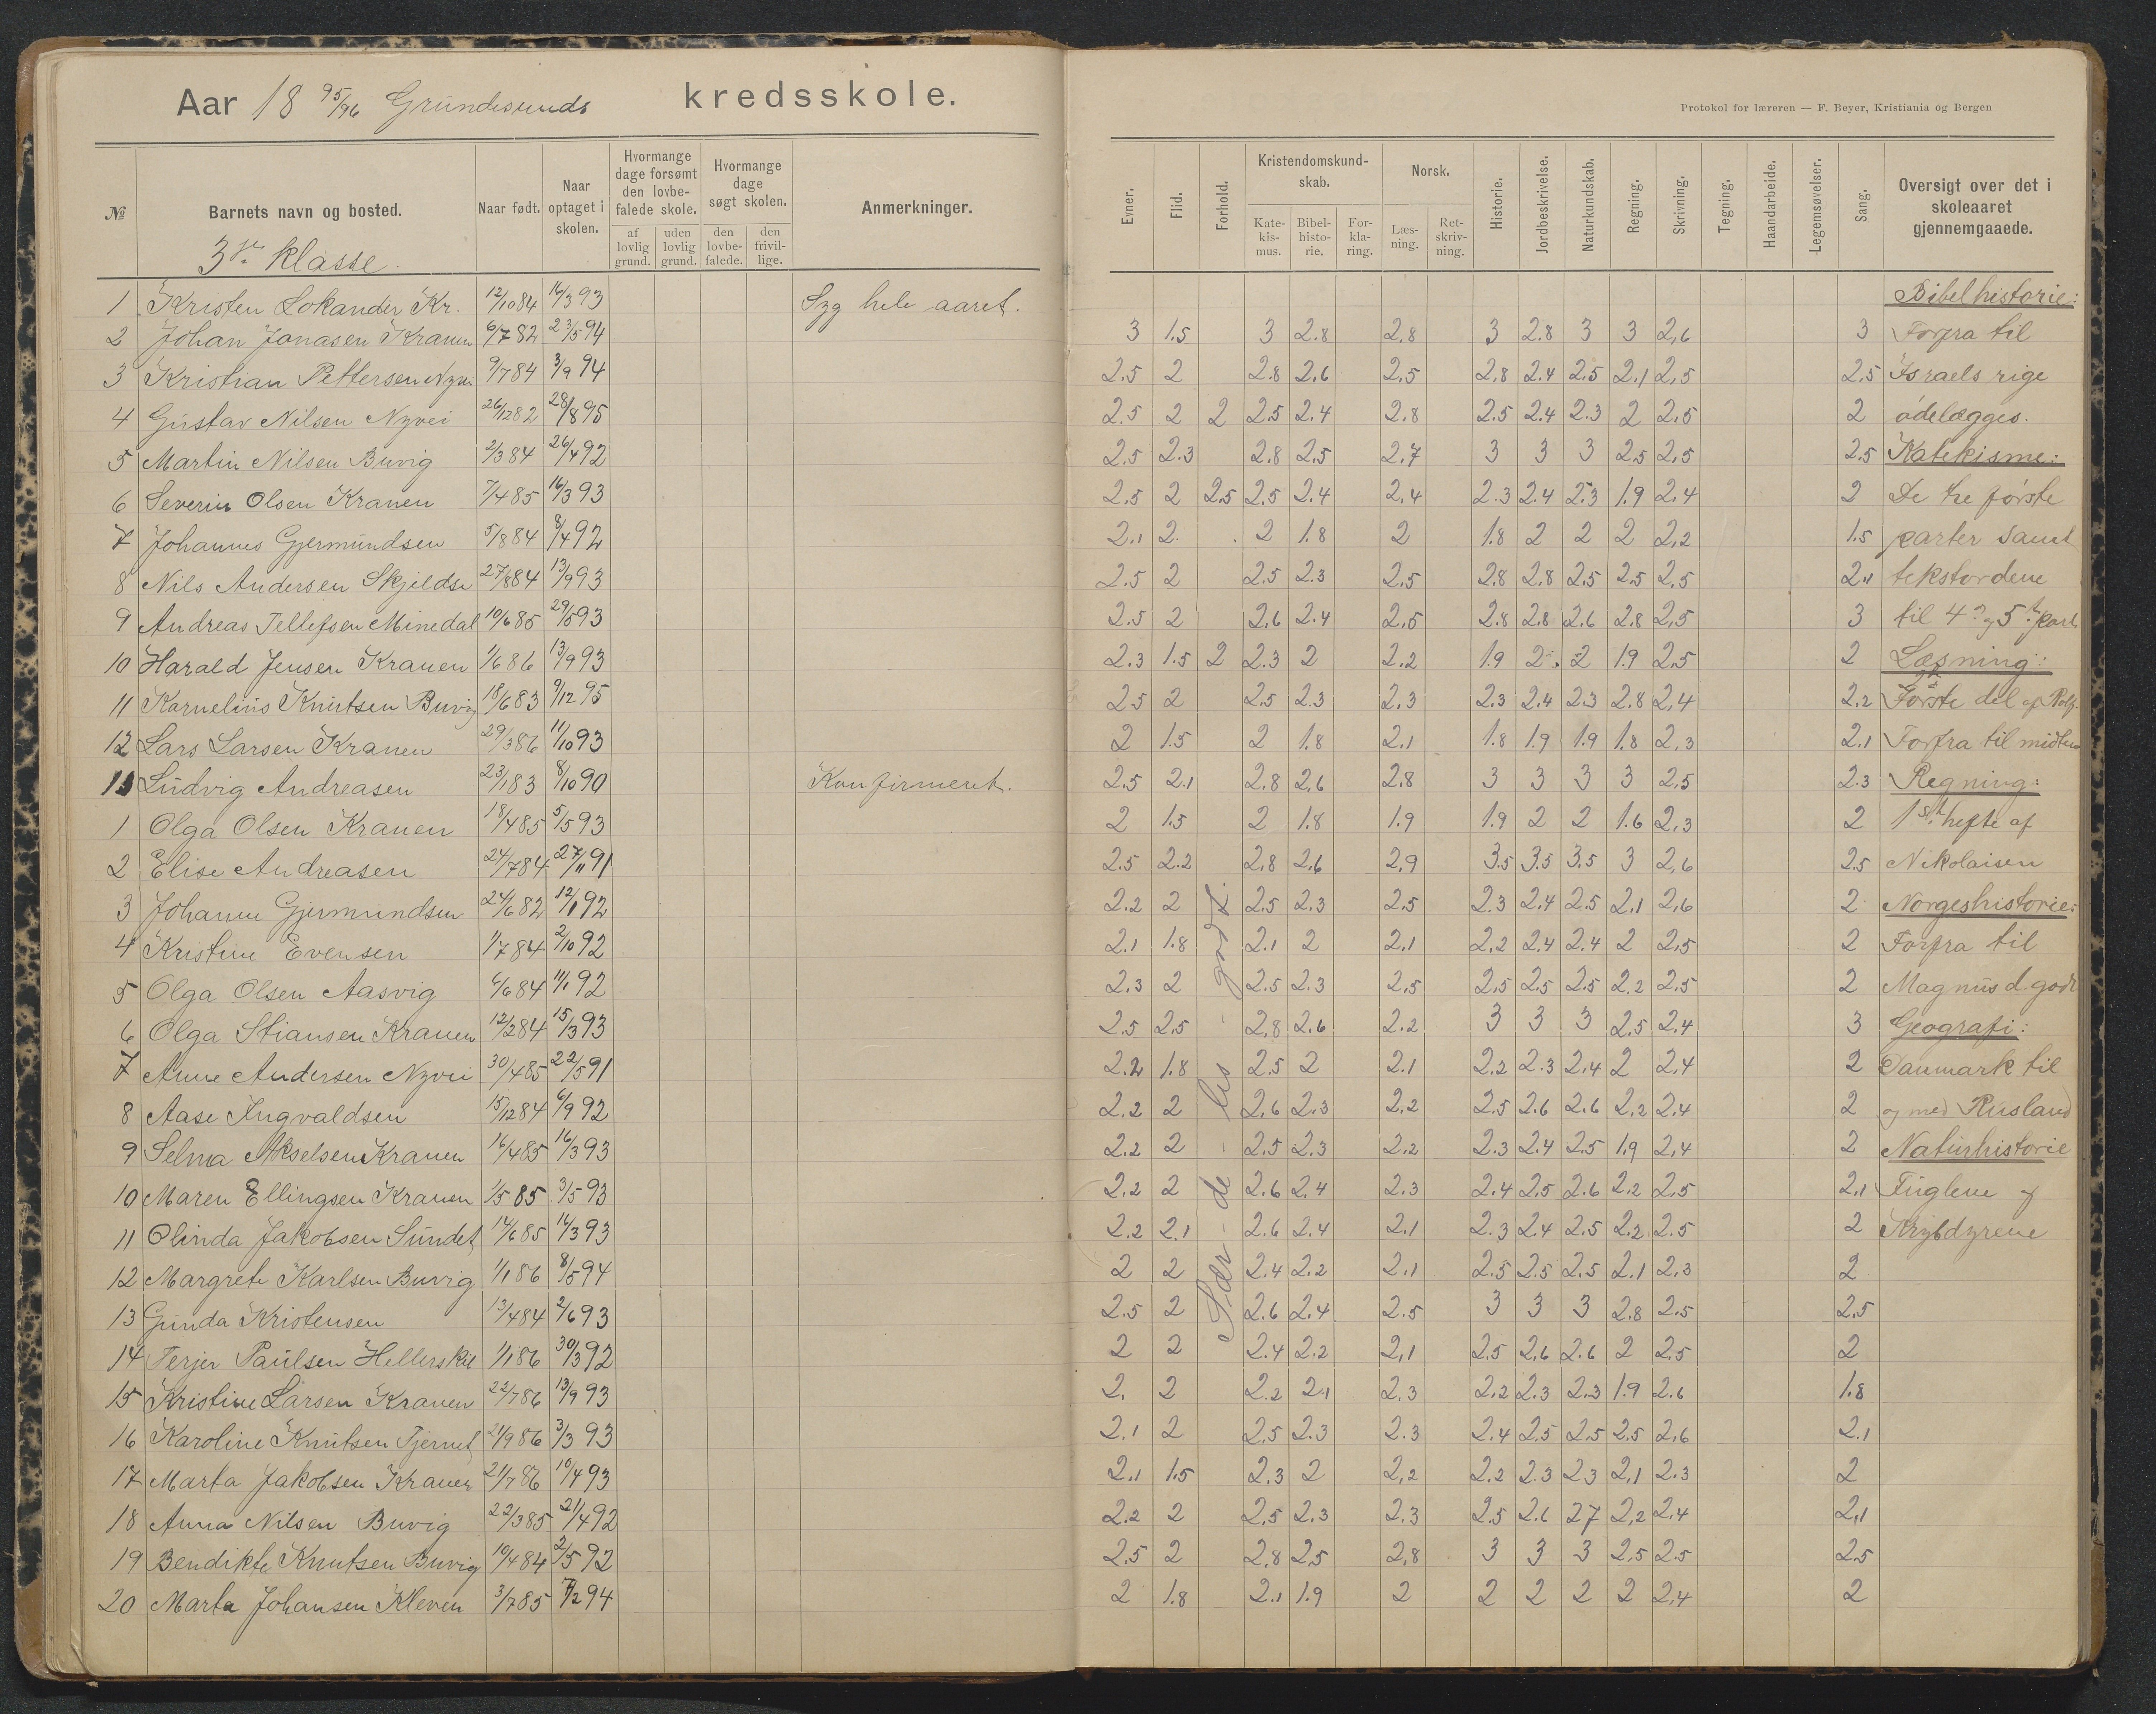 Aar 18 95/96 Grundesunds kredsskole.
Protokol for læreren — F. Beyer, Kristiania og Bergen
№ Barnets navn og bosted. Naar født. Naar optaget i skolen. Hvormange dage forsømt den lovbefalede skole. af lovlig grund. uden lovlig grund. Hvormange dage søgt skolen. den lovbefalede. den frivillige. Anmerkninger.
Evner. Flid. Forhold. Kristendomskundskab. Katekismus. Bibelhistorie. Forklaring. Norsk. Læsning. Retskrivning. Historie. Jordbeskrivelse. Naturkundskab. Regning. Skrivning. Tegning. Haandarbeide. Legemsøvelser. Sang. Oversigt over det i skoleaaret gjennemgaaede.
3die klasse.
1 Kristen Lokander Kr. 12/10 84 16/3 93 Syg hele aaret. Bibelhistorie:
2 Johan Jonasen Kranen 6/7 82 23/5 94 3 1.5 3 2.8 2,8 3 2.8 3 3 2,6 3 Forfra til
3 Kristian Pettersen Nyvei 9/7 84 3/9 94 2.5 2 2.8 2,6 2,5 2,8 2.4 2.5 2.1 2,5 2,5 Israels rige
4 Gustav Nilsen Nyvei 26/12 82 28/8 95 2.5 2 2 2,5 2.4 2.8 2.5 2.4 2.3 2 2,5 2 ødelægges.
5 Martin Nilsen Buvig 2/3 84 26/4 92 2.5 2.3 2.8 2,5 2,7 3 3 3 2,5 2,5 2.5 Katekisme:
6 Severin Olsen Kranen 7/4 85 16/3 93 2,5 2 2,5 2,5 2.4 2,4 2.3 2.4 2.3 1.9 2.4 2 De tre første
7 Johannes Gjermundsen 5/8 84 8/4 92 2.1 2. 2 1.8 2 1.8 2 2 2 2,2 1.5 parter samt
8 Nils Andersen Skjeldsø 27/8 84 13/9 93 2.5 2 2.5 2.3 2,5 2.8 2,8 2,5 2,5 2,5 2,1 tekstordene
9 Andreas Tellefsen Minedal 10/6 85 29/5 93 2.5 2 2,6 2.4 2,5 2.8 2.8 2.6 2.8 2,5 3 til 4de og 5te part
10 Harald Jensen Kranen 1/6 86 13/9 93 2.3 1.5 2 2.3 2 2.2 1.9 2. 2 1.9 2,5 2 Læsning:
11 Kornelius Knutsen Buvig 18/6 83 9/12 95 2.5 2 2.5 2.3 2,3 2.3 2,4 2.3 2.8 2,4 2.2 Første del af Rolfs.
12 Lars Larsen Kranen 29/3 86 11/10 93 2 1.5 2 1.8 2.1 1.8 1.9 1.9 1.8 2,3 2.1 Forfra til midten
13 Ludvig Andreasen 23/1 83 8/10 90 Konfirmeret. 2,5 2.1 2,8 2,6 2,8 3 3 3 3 2,5 2.3 Regning:
1 Olga Olsen Kranen 18/4 85 5/5 93 2 1.5 2 1.8 1.9 1.9 2 2 1.6 2,3 2 1ste hefte af
2 Elise Andreasen 24/7 84 27/11 91 2.5 2.2 2,8 2,6 2,9 3.5 3.5 3.5 3 2,6 2.5 Nikolaisen
3 Johanne Gjermundsen 24/6 82 12/1 92 2.2 2 2.5 2.3 2.5 2.3 2.4 2.5 2.1 2,6 2 Norgeshistorie:
4 Kristine Evensen 1/7 84 2/10 92 2.1 1.8 2.1 2 2,1 2,2 2.4 2.4 2 2,5 2 Forfra til
5 Olga Olsen Aasvig 6/6 84 11/1 92 2.3 2 2.5 2.3 2,5 2,5 2,5 2.5 2.2 2.5 2 Magnus d. gode
6 Olga Stiansen Kranen 12/2 84 15/3 93 2.5 2.5 2,8 2.6 2.2 3 3 3 2.5 2.4 3 Geografi:
7 Anne Andersen Nyvei 30/4 85 22/5 91 2.2 1.8 2.5 2 2.1 2.2 2.3 2.4 2 2.4 2 Danmark til
8 Aase Ingvaldsen 15/12 84 6/9 92 2.2 2 2,6 2.3 2,2 2.5 2.6 2.6 2,2 2.4 2 og med Rusland
9 Selma Akselsen Kranen 16/4 85 16/3 93 2.2 2 2.5 2.3 2.2 2.3 2.4 2.5 1.9 2,4 2 Naturhistorie
10 Maren Ellingsen Kranen 1/5 85 3/5 93 2.2 2 2.6 2.4 2.3 2.4 2,5 2.6 2.2 2,5 2.1 Fuglene og
11 Olinda Jakobsen Sundet 14/6 85 14/3 93 2.2 2.1 2.6 2.4 2.1 2.3 2.4 2.5 2.2 2.5 2 Krybdyrene
12 Margrete Karlsen Buvig 1/1 86 8/5 94 2 2 2.4 2.2 2.1 2.5 2.5 2.5 2.1 2,3 2
13 Gunda Kristensen 13/4 84 2/6 93 2.5 2 2.6 2.4 2.5 3 3 3 2.8 2.5 2,5
14 Terjer Paulsen Hellerskil 1/1 86 30/3 92 2 2 2.4 2.2 2,1 2.5 2,6 2.6 2 2.5 2
15 Kristine Larsen Kranen 22/7 86 13/9 93 2. 2 2.2 2.1 2.3 2,2 2.3 2.3 1.9 2.6 1.8
16 Karoline Knutsen Tjernet 21/9 86 3/3 93 2.1 2 2,5 2.3 2.3 2.4 2.5 2.5 2.5 2,6 2.1
17 Marta Jakobsen Kranen 21/7 86 10/4 93 2.1 1.5 2.3 2 2,2 2.2 2.3 2.3 2,1 2.3 2
18 Anna Nilsen Buvig 22/3 85 21/4 92 2.2 2 2,5 2.3 2.3 2.5 2.6 2.7 2,2 2.4 2,1
19 Bendikte Knutsen Buvig 10/4 84 2/5 92 2.5 2 2.8 2.5 2,8 3 3 3 2.5 2.5 2.5
20 Marta Johansen Kleven 3/7 85 7/2 94 2 1.8 2.1 1.9 2 2 2 2 2 2,4 2
Sær-de-les - godt.